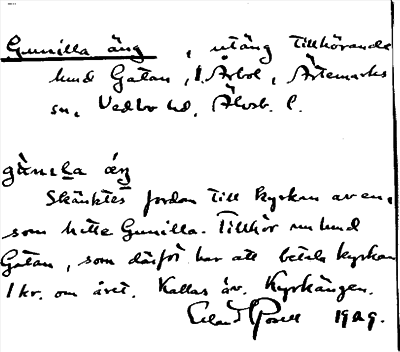 Gunilla äng, utäng tillhörande
lund Gatan, i Årbol, Ärtemarks
sn, Vedbo hd, Älvsb. l.
gùnıla äŋ
Skänktes fordom till kyrkan av en,
som hette Gunilla. Tillhör nu lund
Gatan, som därför har att betala kyrkan
1 kr. om året. Kallas äv. Kyrkängen.
Erland Rosell 1929.